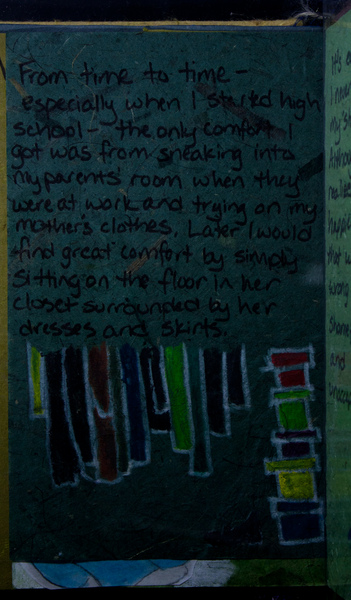 From time to time-
especially when I started high
school- the only comfort I
got was from sneaking into
my parents' room when they
were at work and trying on my
mother's clothes. Later I would
find great comfort by simply
sitting on the floor in her
closet surrounded by her
dresses and skirts.
It's
I
my
that
wrong
and